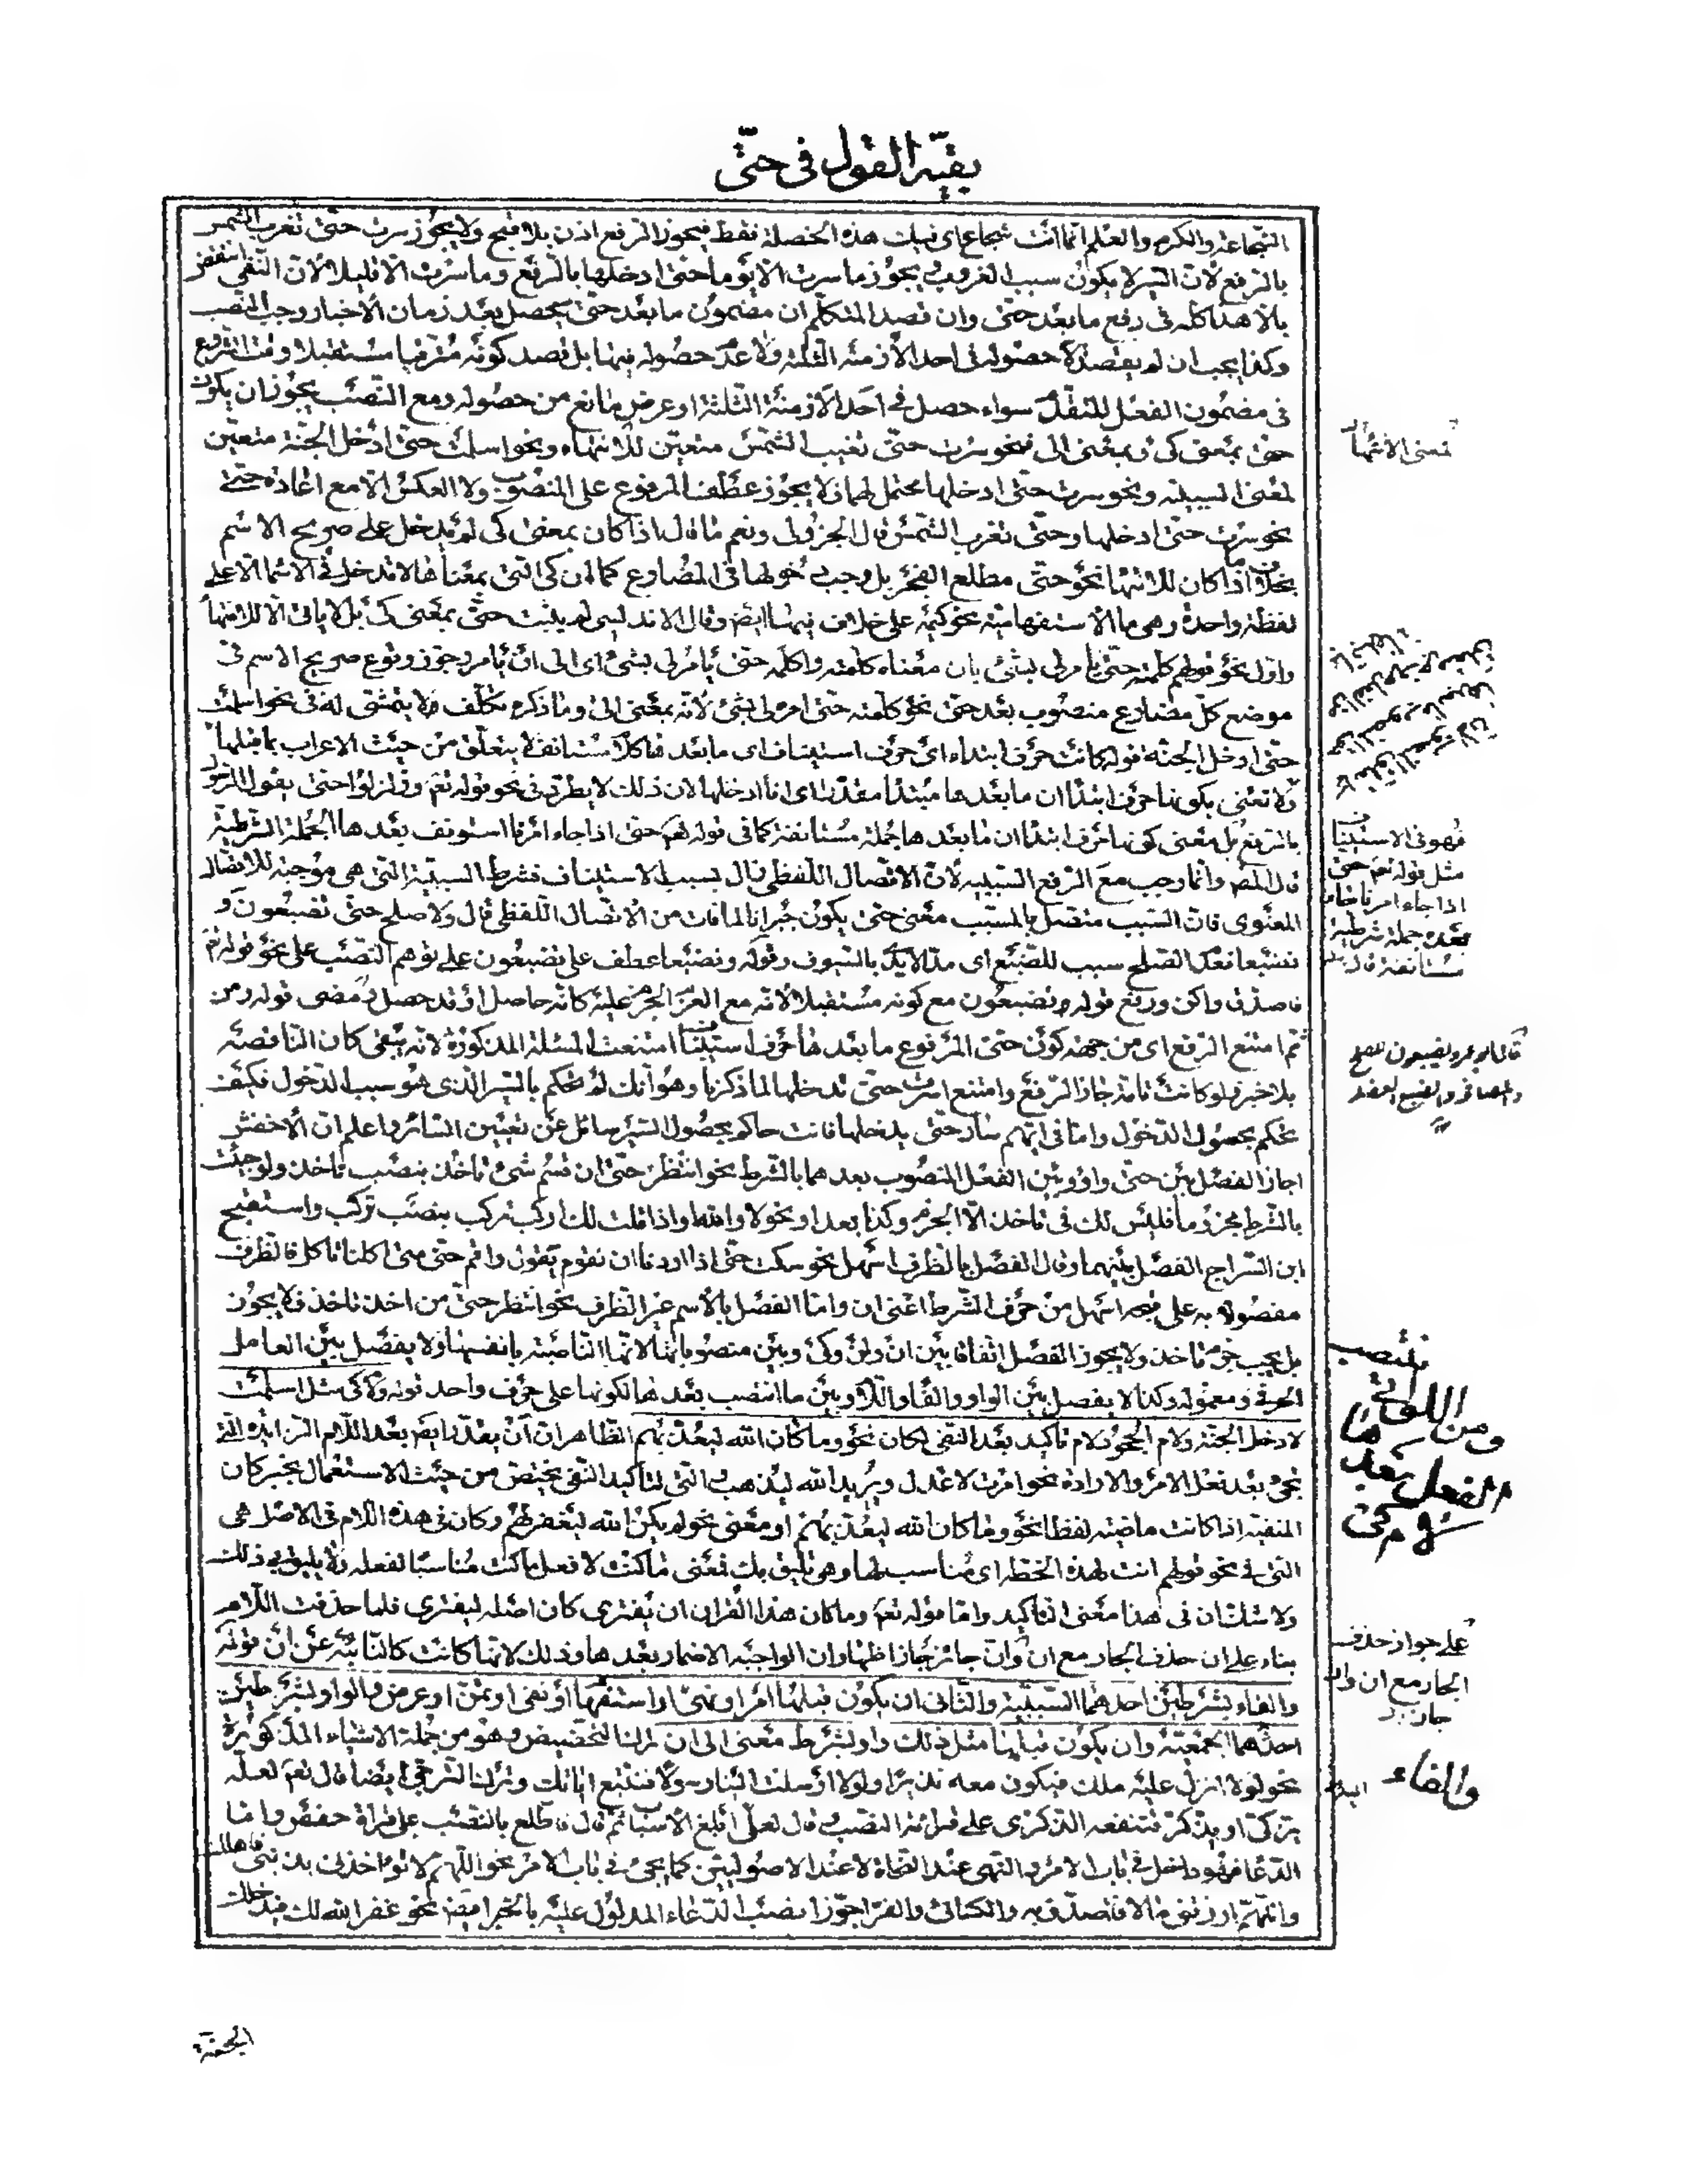 بقيّة القول فى حتّى
الشجاعة والكرم والعلم انما انت شجاع اى فيك هذه الخصلة فقط فيجوز الرفع اذن بلا قبح ولا يجوز سرت حتّى تغرب الشمس
بالرفع لأن السير لا يكون سبب الغروب و يجوز ما سرت الا يوما حتى ادخلها بالرفع وما سرت الا قليلا لان النفى انتقض
بالا هذا كله فى رفع ما بعد حتى وان قصد المتكلم ان مضمون ما بعد حتى يحصل بعد زمان الأخبار وجب النصب
وكذا يجب ان لم يقصد لا حصوله فى احد الأزمنة الثلثة ولا عدم حصوله فيها بل قصد كونه مترقبا مستقبلا وقت الشروع
فى مضمون الفعل المتقدّم سواء حصل فى احد الازمنة الثلثة او عرض مانع من حصوله ومع النصب يجوز ان يكون
حتى بمعنى كى وبمعنى الى فنحو سرت حتى تغيب الشمس متعين للانتهاء ونحو اسلمت حتى ادخل الجنة متعين
لمعنى السببية ونحو سرت حتى ادخلها محتمل لهما فلا يجوز عطف المرفوع على المنصوب ولا العكس الا مع اعادة حتى
نحو سرت حتى ادخلها وحتى تغرب الشمس قال الجزولى ونعم ما قال اذا كان بمعنى كى لم يدخل على صريح الاسم
بخلاف ما اذا كان للانتهاء نحو حتى مطلع الفجر بل وجب دخولها فى المضارع كما ان كى التى بمعناها لا تدخل فى الاسماء الا على
لفظة واحدة وهى ما الاستفهامية نحو كيمه على خلاف فيها ايضا وقال الاندلسى لم يثبت حتى بمعنى كى بل لا ياتى الا للانتهاء
واول نحو قولهم كلمته حتى يأمر لى بشئ بان معناه كلمته واكلمه حتى يأمر لى بشئ اى الى ان يأمر وجوز وقوع صريح الاسم فى
موضع كل مضارع منصوب بعد حتى نحو كلمته حتى امره لى بشئ لأنه بمعنى الى وما ذكره تكلّف ولا يتمشّى له فى نحو اسلمت
حتى ادخل الجنة قوله كانت حرف ابتداء اى حرف استيناف اى ما بعد ها كلام مستانف لا يتعلق من حيث الاعراب بما قبلها
ولا نعنى بكونها حرف ابتدا ان ما بعدها مبتدا مقدّرا اى انا ادخلها لان ذلك لا يطرّد فى نحو قوله تعم وزلزلوا حتى يقول الرّسول
بالرفع بل معنى كونها حرف ابتدا ان ما بعدها جملة مستانفة كما فى قوله تعم حتى اذا جاء امرنا استونف بعدها الجملة الشرطية
قال المصم وانما وجب مع الرفع السببية لأن الاتصال اللفظى زال بسبب الاستيناف فشرط السببية التى هى موجبة للاتصال
المعنوى فان السبب متصل بالمسبّب معنى حتى يكون جبرانا لما فات من الاتصال اللفظى قال ولا صلح حتى تضبعون و
نضبعا فعدم الصلح سبب للضبع اى مدّ الايدى بالسيوف وقوله ونضبعا عطف على تضبعون على توهم النصب على نحو قوله تعم
فاصدق واكن ورفع قوله تضبعون مع كونه مستقبلا لأنه مع العزم الجزم عليه كانه حاصل او قد حصل ومضى قوله ومن
ثم امتنع الرفع اى من جهة كون حتى المرفوع ما بعدها حرف استيناف امتنعت المسئلة المذكورة لأنه يبقى كان الناقصة
بلا خبر ولو كانت تامة جاز الرفع وامتنع اسرت حتى تدخلها لما ذكرنا وهو انك لم تحكم بالسير الذى هو سبب الدخول فكيف
تحكم بحصول الدخول واما فى ايهم سار حتى يدخلها فانت حاكم بحصول السير سائل عن تعيين السائر واعلم ان الأخفش
اجاز الفصل بين حتى واو وبين الفعل المنصوب بعدهما بالشرط نحو انتظر حتى ان قسم شئ تأخذ بنصب تأخذ ولو جئت
بالشرط مجزوما فليس لك فى تأخذ الا الجزم وكذا بعد او نحو لا والله او اذا قلت لك اركب تركب بنصب تركب واستقبح
ابن السراج الفصل بينهما وقال الفصل بالظرف اسهل نحو سكت حتى اذا اردنا ان نقوم يقول واقم حتى متى اكلنا تأكل فالظرف
مفصول به على قبحه اسهل من حرف الشرط اعنى ان واما الفصل بالأسم غير الظرف نحو انتظر حتى من اخذ تأخذ فلا يجوز
بل يجب جزم تأخذ ولا يجوز الفصل اتفاقا بين ان ولن وكى وبين منصوباتها لانها الناصبة بانفسها ولا يفصل بين العامل
الحرفى ومعموله وكذا لا يفصل بين الواو والفاء واللام وبين ما انتصب بعدها لكونها على حرف واحد قوله ولام كى مثل اسلمت
لادخل الجنة ولام الجحود لام تأكيد بعد النفى لكان نحو وما كان الله ليعذبهم الظاهر ان ان يقدّر ايضا بعد اللام الزايدة التى
تجئ بعد فعل الامر والارادة نحو امرت لاعدل ويريد الله ليذهب والتى لتاكيد النفى يختص من حيث الاستعمال بخبر كان
المنفية اذا كانت ماضية لفظا نحو وما كان الله ليعذبهم او معنى نحو لم يكن الله ليغفر لهم وكان فى هذه اللام فى الاصل هى
التى فى نحو قولهم انت لهذه الخطة اى مناسب لها وهى تليق بك فمعنى ما كنت لافعل ما كنت مناسبا لفعله ولا يليق بى ذلك
ولا شك ان فى هذا معنى التاكيد واما قوله تعم وما كان هذا القران ان يفترى كان اصله ليفترى فلما حذفت اللام
بناء على ان حذف الجار مع ان وانّ جائز جاز اظهار ان الواجبة الاضمار بعدها وذلك لانها كانت كالنائبة عن ان قوله
والفاء بشرطين احدهما السببية والثانى ان يكون قبلها امر او نهى او استفهام او نفى او تمن او عرض والواو بشرطين
احدهما الجمعية وان يكون قبلها مثل ذلك واو بشرط معنى الى ان لمرنا التخصيص وهو من جملة الاشياء المذكورة
نحو لولا انزل عليه ملك فيكون معه نذيرا ولولا ارسلت الينا رسولا فنتبع اياتك وترك الترجى ايضا قال تعم لعله
يزكى او يذكر فتنفعه الذكرى على قرائة النصب وقال لعلى ابلغ الاسباب ثم قال فاطلع بالنصب على قراة حفص واما
الدعا فهو داخل فى باب الامر والنهى عند النحاة لا عند الاصوليين كما يجئ فى باب الامر نحو اللهم لا تؤاخذنى بذنبى فاهلك
واللهم ارزقنى مالا فاتصدق به والكسائى والفرا جوّزا نصب الدعاء المدلول عليه بالخبر ايضا نحو غفر الله لك فيدخلك
بمعنى الانتهاء
فهو فى الاستينا
ف مثل قوله تعم حتى
اذا جاء امرنا فان ما
بعده جملة شرطية
مستانفة قال
فنصب
ومن اللواتى
الفعل بعدها
لام كى
على جواز حذف
الجار مع ان وان
جائز
والفاء
الجنة